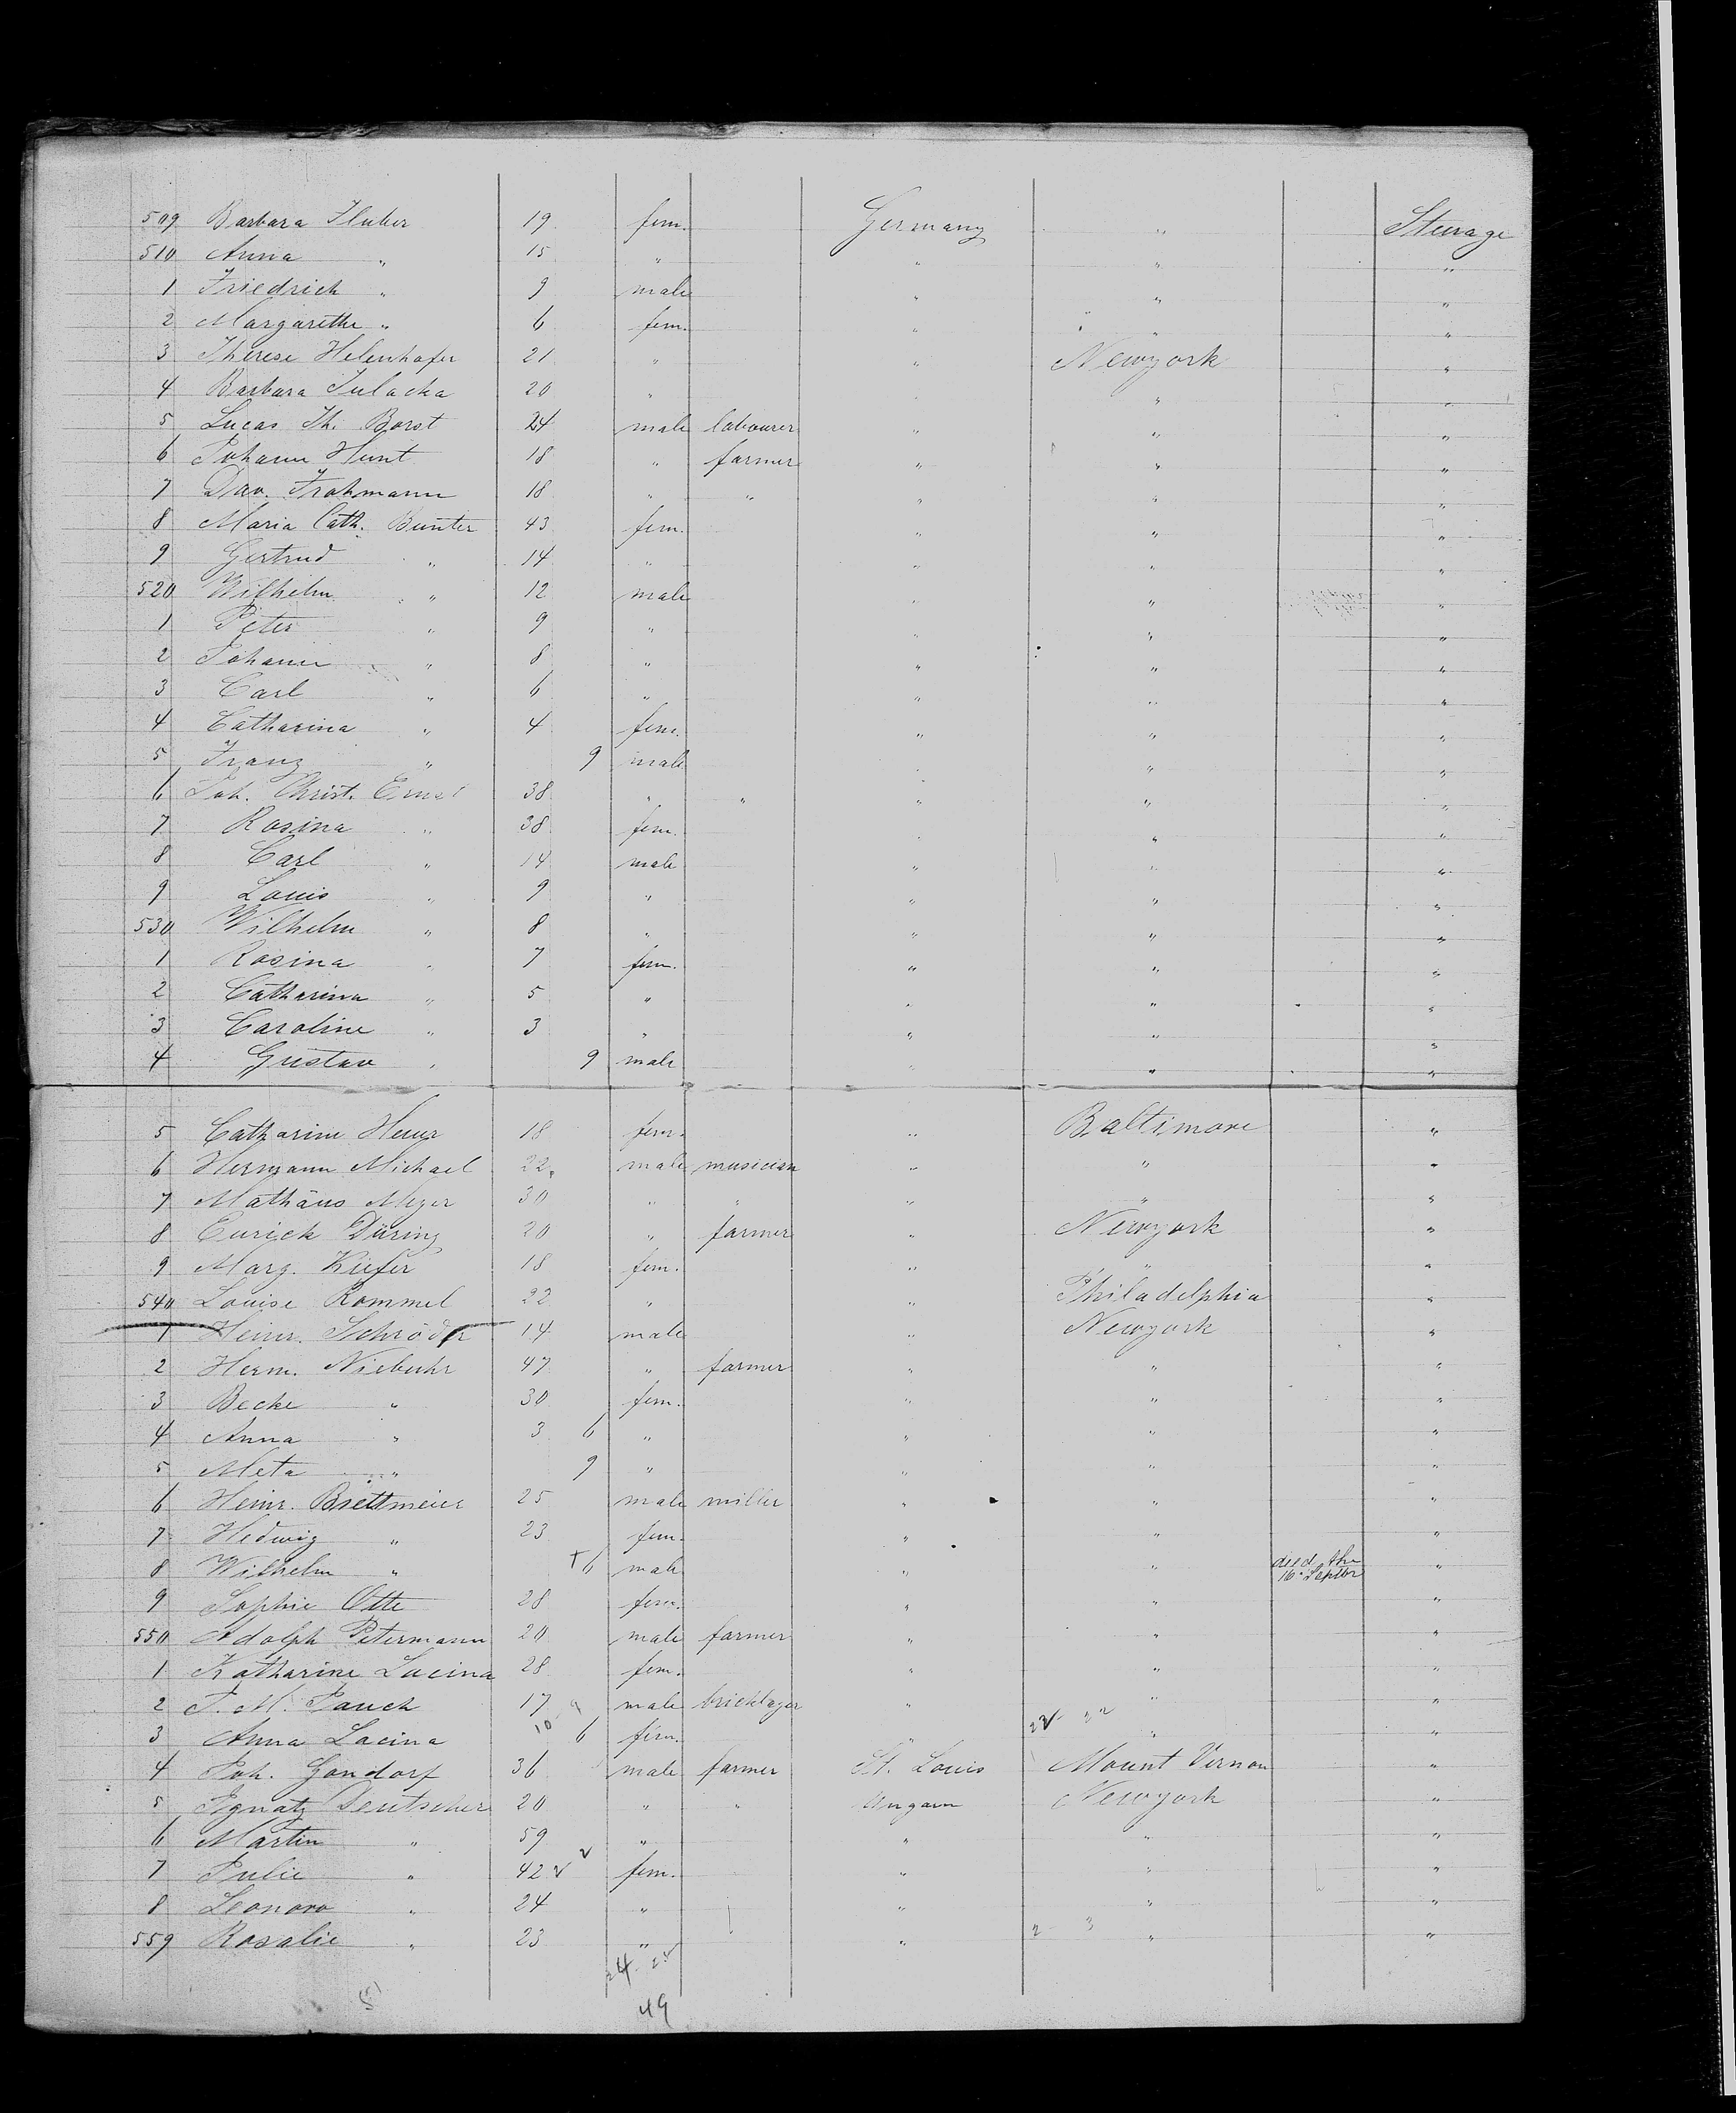 509 Barbara Huber 19 fem. Germany " Steerage
510 Anna " 15 " " " "
1 Friedrich " 9 male " " "
2 Margarethe " 6 fem. " " "
3 Therese Helenhofer 21 " " Newyork "
4 Barbara 20 " " " "
5 Lucas Th. Borst 24 male labourer " " "
6 Johann Hunt 18 " farmer " " "
7 Dav. Frohmann 18 " " " " "
8 Maria Cath. Bunter 43 fem. " " "
9 Gertrud " 14 " " " "
520 Wilhelm " 12 male " " "
1 Peter " 9 " " " "
2 Johann " 8 " " " "
3 Carl " 6 " " " "
4 Catharina " 4 fem. " " "
5 Franz " 9 male " " "
6 Joh. Christ. Ernst 38 " " " " "
7 Rosina " 38 fem. " " "
8 Carl " 14 male " " "
9 Louis " 9 " " " "
530 Wilhelm " 8 " " " "
1 Rosina " 7 fem. " " "
2 Catharina " 5 " " " "
3 Caroline " 3 " " " "
4 Gustav " 9 male " " "
5 Catharine 18 fem. " Baltimore "
6 Hermann Michael 22 male musician " " "
7 Mathäus Meyer 30 " " " " "
8 Düring 20 " farmer " Newyork "
9 Marg. Kiefer 18 fem. " " "
540 Louise Rommel 22 " " Philadelphia "
1 Heinr. Schröder 14 male " Newyork "
2 Herm. Niebuhr 47 " farmer " " "
3 Becke " 30 fem. " " "
4 Anna " 3 6 " " " "
5 Meta " 9 " " " "
6 Heinr. Brettmeier 25 male miller " " "
7 Hedwig " 23 fem. " " "
8 Wilhelm " † 6 male " " died the 16. Septbr "
9 Sophie Otte 28 fem. " " "
550 Adolph Petermann 20 male farmer " " "
1 Katharine Lacina 28 fem. " " "
2 J. M. Pauch 17 male bricklayer " " "
3 Anna Lacina 6 fem. " " "
4 Joh. Gondorf 36 male farmer St. Louis Mount Vernon "
5 Ignatz Deutscher 20 " " Ungarn Newyork "
6 Martin " 59 " " " "
7 Julie " 42 fem. " " "
8 Leonora " 24 " " " "
559 Rosalie " 23 " " " "
49